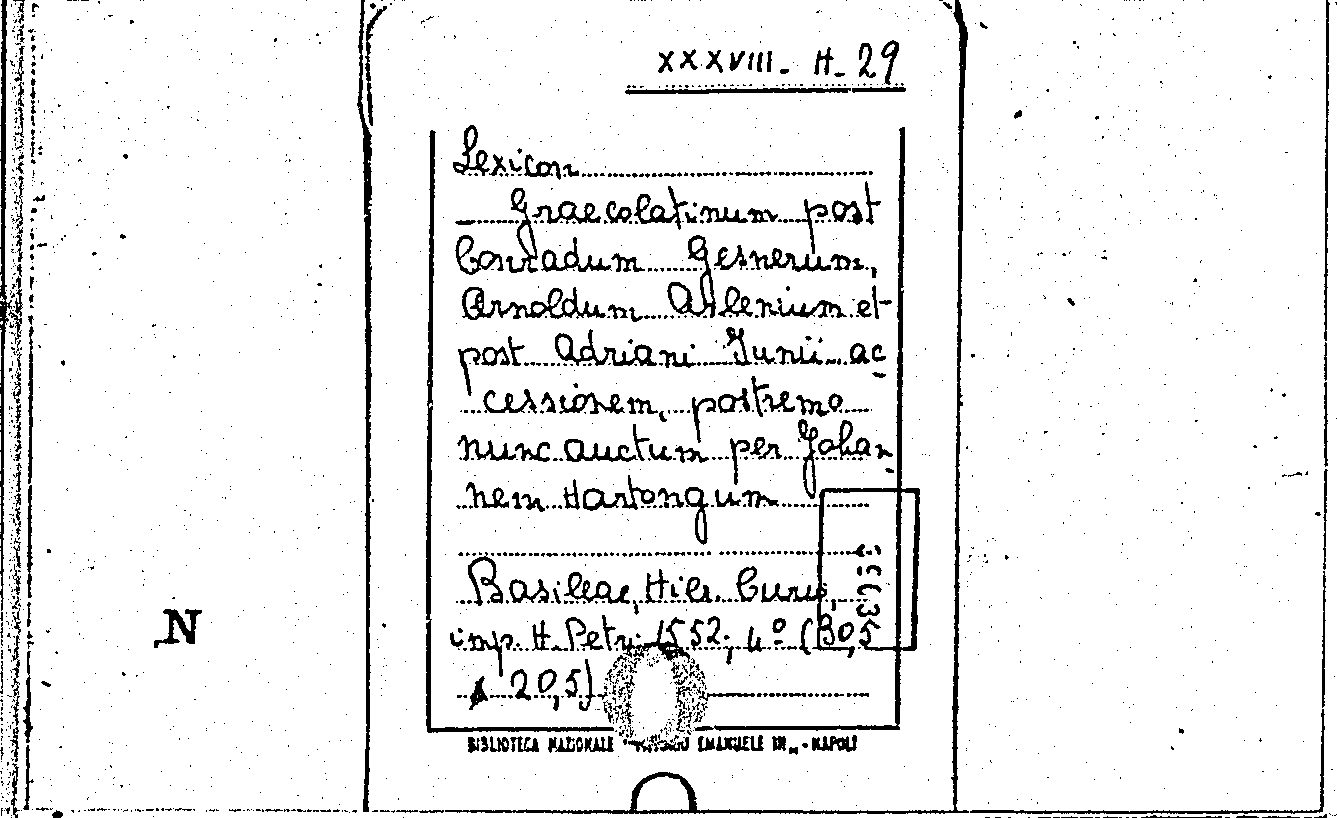 XXXVIII- H- 29
Lexicon
_ Graecolatinum post
Conradum Gesnerum,
Arnoldum Arlenium et
post Adriani Junii ac
cessionem, postremo
nunc auctum per Johan
nem Hartongum
Basileae, Hier. Curio,
imp. H. Petri 1552; 4º (30,5
x 20,5)
N
BIBLIOTECA NAZIONALE EMANUELE III - NAPOLI